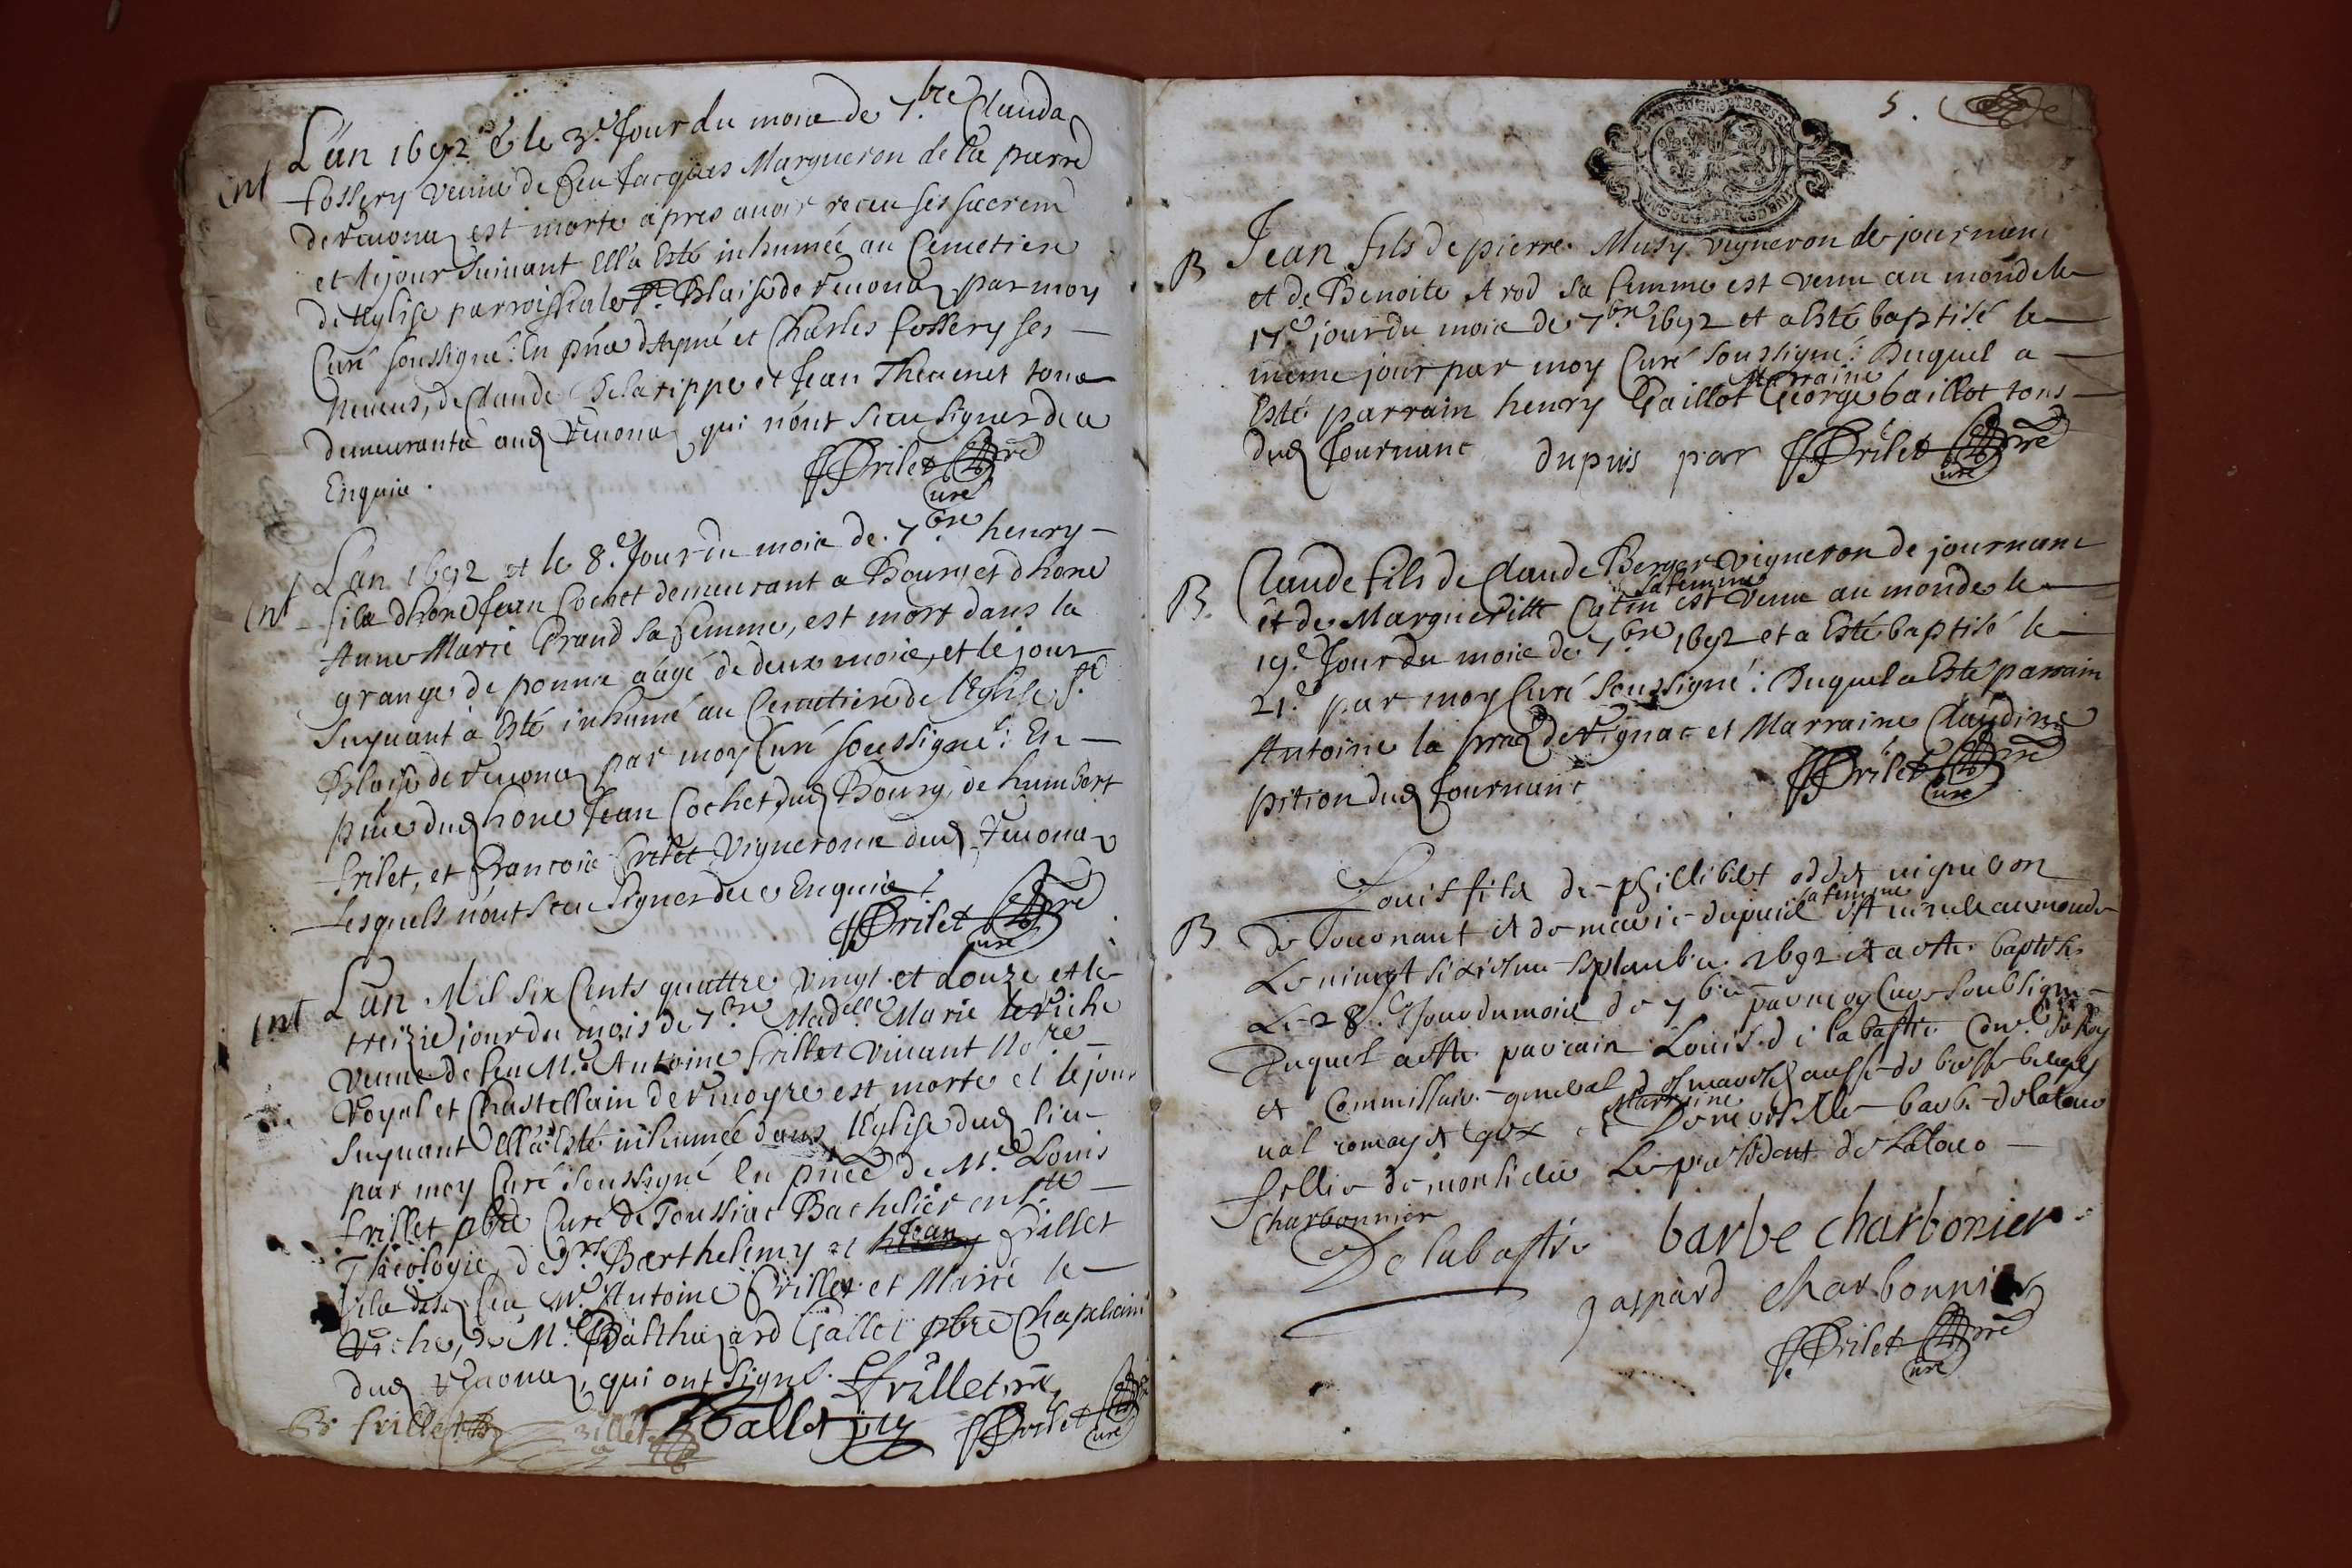 Int
L'an 1692 & le 3.e Jour du mois de 7.bre Clauda
fossery veuve de feu Jacques Margueron de la parre
de Reuonaz est morte apres auoir receu ses sacrem
et le jour suiuant Ell'a Esté inhumée au Cemetiere
de l'Eglise parroissiale St. Blaise de Reuonaz par moy
Curé soussigné: En p̃nce d'Aymé et Charles fossery ses
Neueus, de Claude Delarippe et Jean Theuenet tous
demeurants aud Reuonaz qui n'ont sceu signer de ce
Enquis.
fFrilet pre
Curé
Int
L'an 1692 et le 8.e Jour du mois de 7.bre henry
fils d'hone Jean Cochet demeurant a Bourg et d'hone
Anne Marie Grand sa femme, est mort dans la
grange de ponna aâgé de deux mois, et le jour
suyuant a Esté inhumé au Cemetiere de l'Eglise St
Blaise de Reuonaz par moy Curé soussigné: En
p̃nce dud hone Jean Cochet dud Bourg, de humbert
frilet, et Francois Crilet Vignerons dud Reuonaz
lesquels n'ont sceu signer de ce Enquis
fFrilet pre
Curé
Int
L'an Mil six Cents quattre vingt et douze et le
treizie jour du mois de 7.bre Mad.elle Marie le Riche
veuue de feu M.e Antoine frillet viuant No.re
Royal et Chastellain de Reuoyre est morte et le jour
suyuant Ell'a Esté inhumée dans l'Eglise dud lieu
par moy Curé soussigné En p̃nce de M.e Louis
frillet pbre Curé de Toussiac Bachelier en s.te
Theologie, de S.rs Barthelemy et Jean frillet
fils dud feu M.e Antoine frillet et Marie le
Riche, de M.e Balthazard Gallet pbre Chapelain
dud Reuonaz, qui ont signé. Frillet pre
B frillet frillet B Gallet pre fFrilet pre
Curé
5.
B
Jean fils de pierre Musy vigneron de journans
et de Benoite Arod sa femme est venu au monde le
17.e jour du mois de 7.bre 1692 et a esté baptisé le
meme jour par moy Curé soussigné: Duquel a
Esté parrain henry Gaillot Marraine George baillot tous
dud Journans dupuis par fFrilet pre
Curé
B.
Claude fils de Claude Berger vigneron de journans
et de Margueritte Catin sa femme est venu au monde le
19.e Jour du mois de 7.bre 1692 et a Esté baptisé le
21.e par moy Curé soussigné: Duquel a Esté parrain
Antoine la de Rignac et Marraine Claudine
pition dud Journans fFrilet pre
Curé
B
Louis fils de phillibert oddet vigneron
de Journant et de marie dupuis sa femme est venu au monde
Le vingt sixiesme septambre 1692 et a este baptisé
Le 28.e Jour du mois de 7.bre par moy Curé soubsigné
Duquel a este parrain Louis de la bastie Con.er du Roy
et Commissaire general aussi de bresse bugey
val romey et gex et Marraine Demoiselle barbe delatour
fillie de monsieur Le president de Latour
Charbonnier
De labastie barbe charbonier
gaspard charbonnier
fFrilet pre
Curé